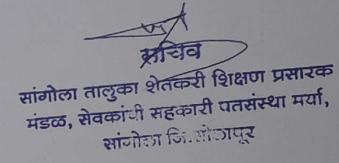 सचिव
सांगोला तालुका शेतकरी शिक्षण प्रसारक
मंडळ, सेवकांची सहकारी पतसंस्था मर्या,
सांगोला जि.सोलापूर